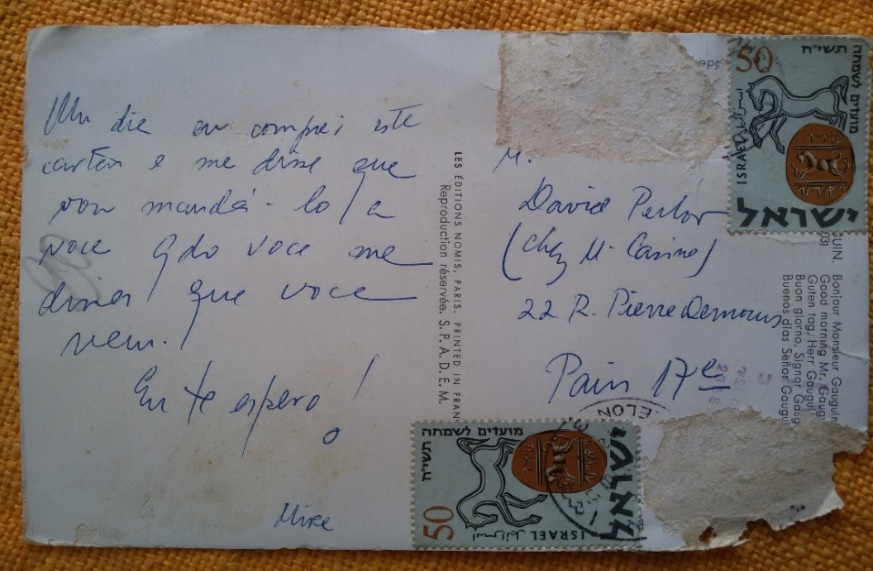 Um dia eu comprei este
cartão e me disse que
vou mandá-lo a
voce qdo voce me
disser que voce
vem.
Eu te espero!
Mire
LES ÉDITIONS NOMIS, PARIS. PRINTED IN FRAN
Reproduction réservée. S.P.A.D.E.M.
M.
David Perlov
(chez M.
22 R. Pierre Demours
Paris 17e
50
תשי"ח
מועדים לשמחה
ISRAEL اسرائيل
ישראל
GUIN. Bonjour Monsieur Gauguin
Good morning Mr. Gaug
Guten tag, Herr Gaugui
Buon giorno, Signor Gaug
Buenos días Señor Gaugu
ELON
מועדים לשמחה תשי"ח
ישראל
50
ISRAEL اسرائيل